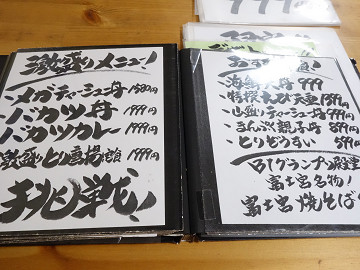 激盛りメニュー!
・メガチャーシュー丼 1580
・バカツ丼 1999円
・バカツカレー 1999円
・激盛りとり唐揚 1999円
挑戦!
海鮮丼 999
・特撰えび天重 1399円
・山盛りチャーシュー丼 999円
・さんぷく親子丼 899円
・とりぞうすい 599円
B1グランプリ殿堂
富士宮名物!
富士宮焼そば